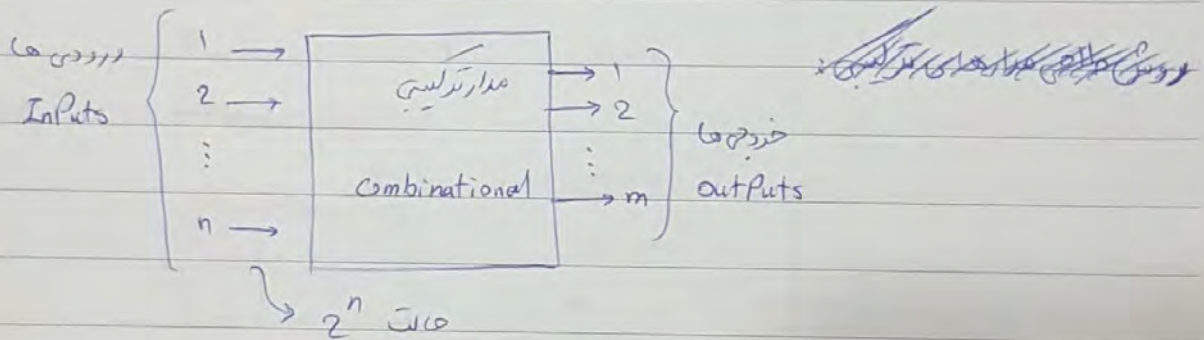 ورودی ها
Inputs
1
2
⋮
n
مدار ترکیبی
Combinational
1
2
⋮
m
خروجی ها
outputs
2^n حالت